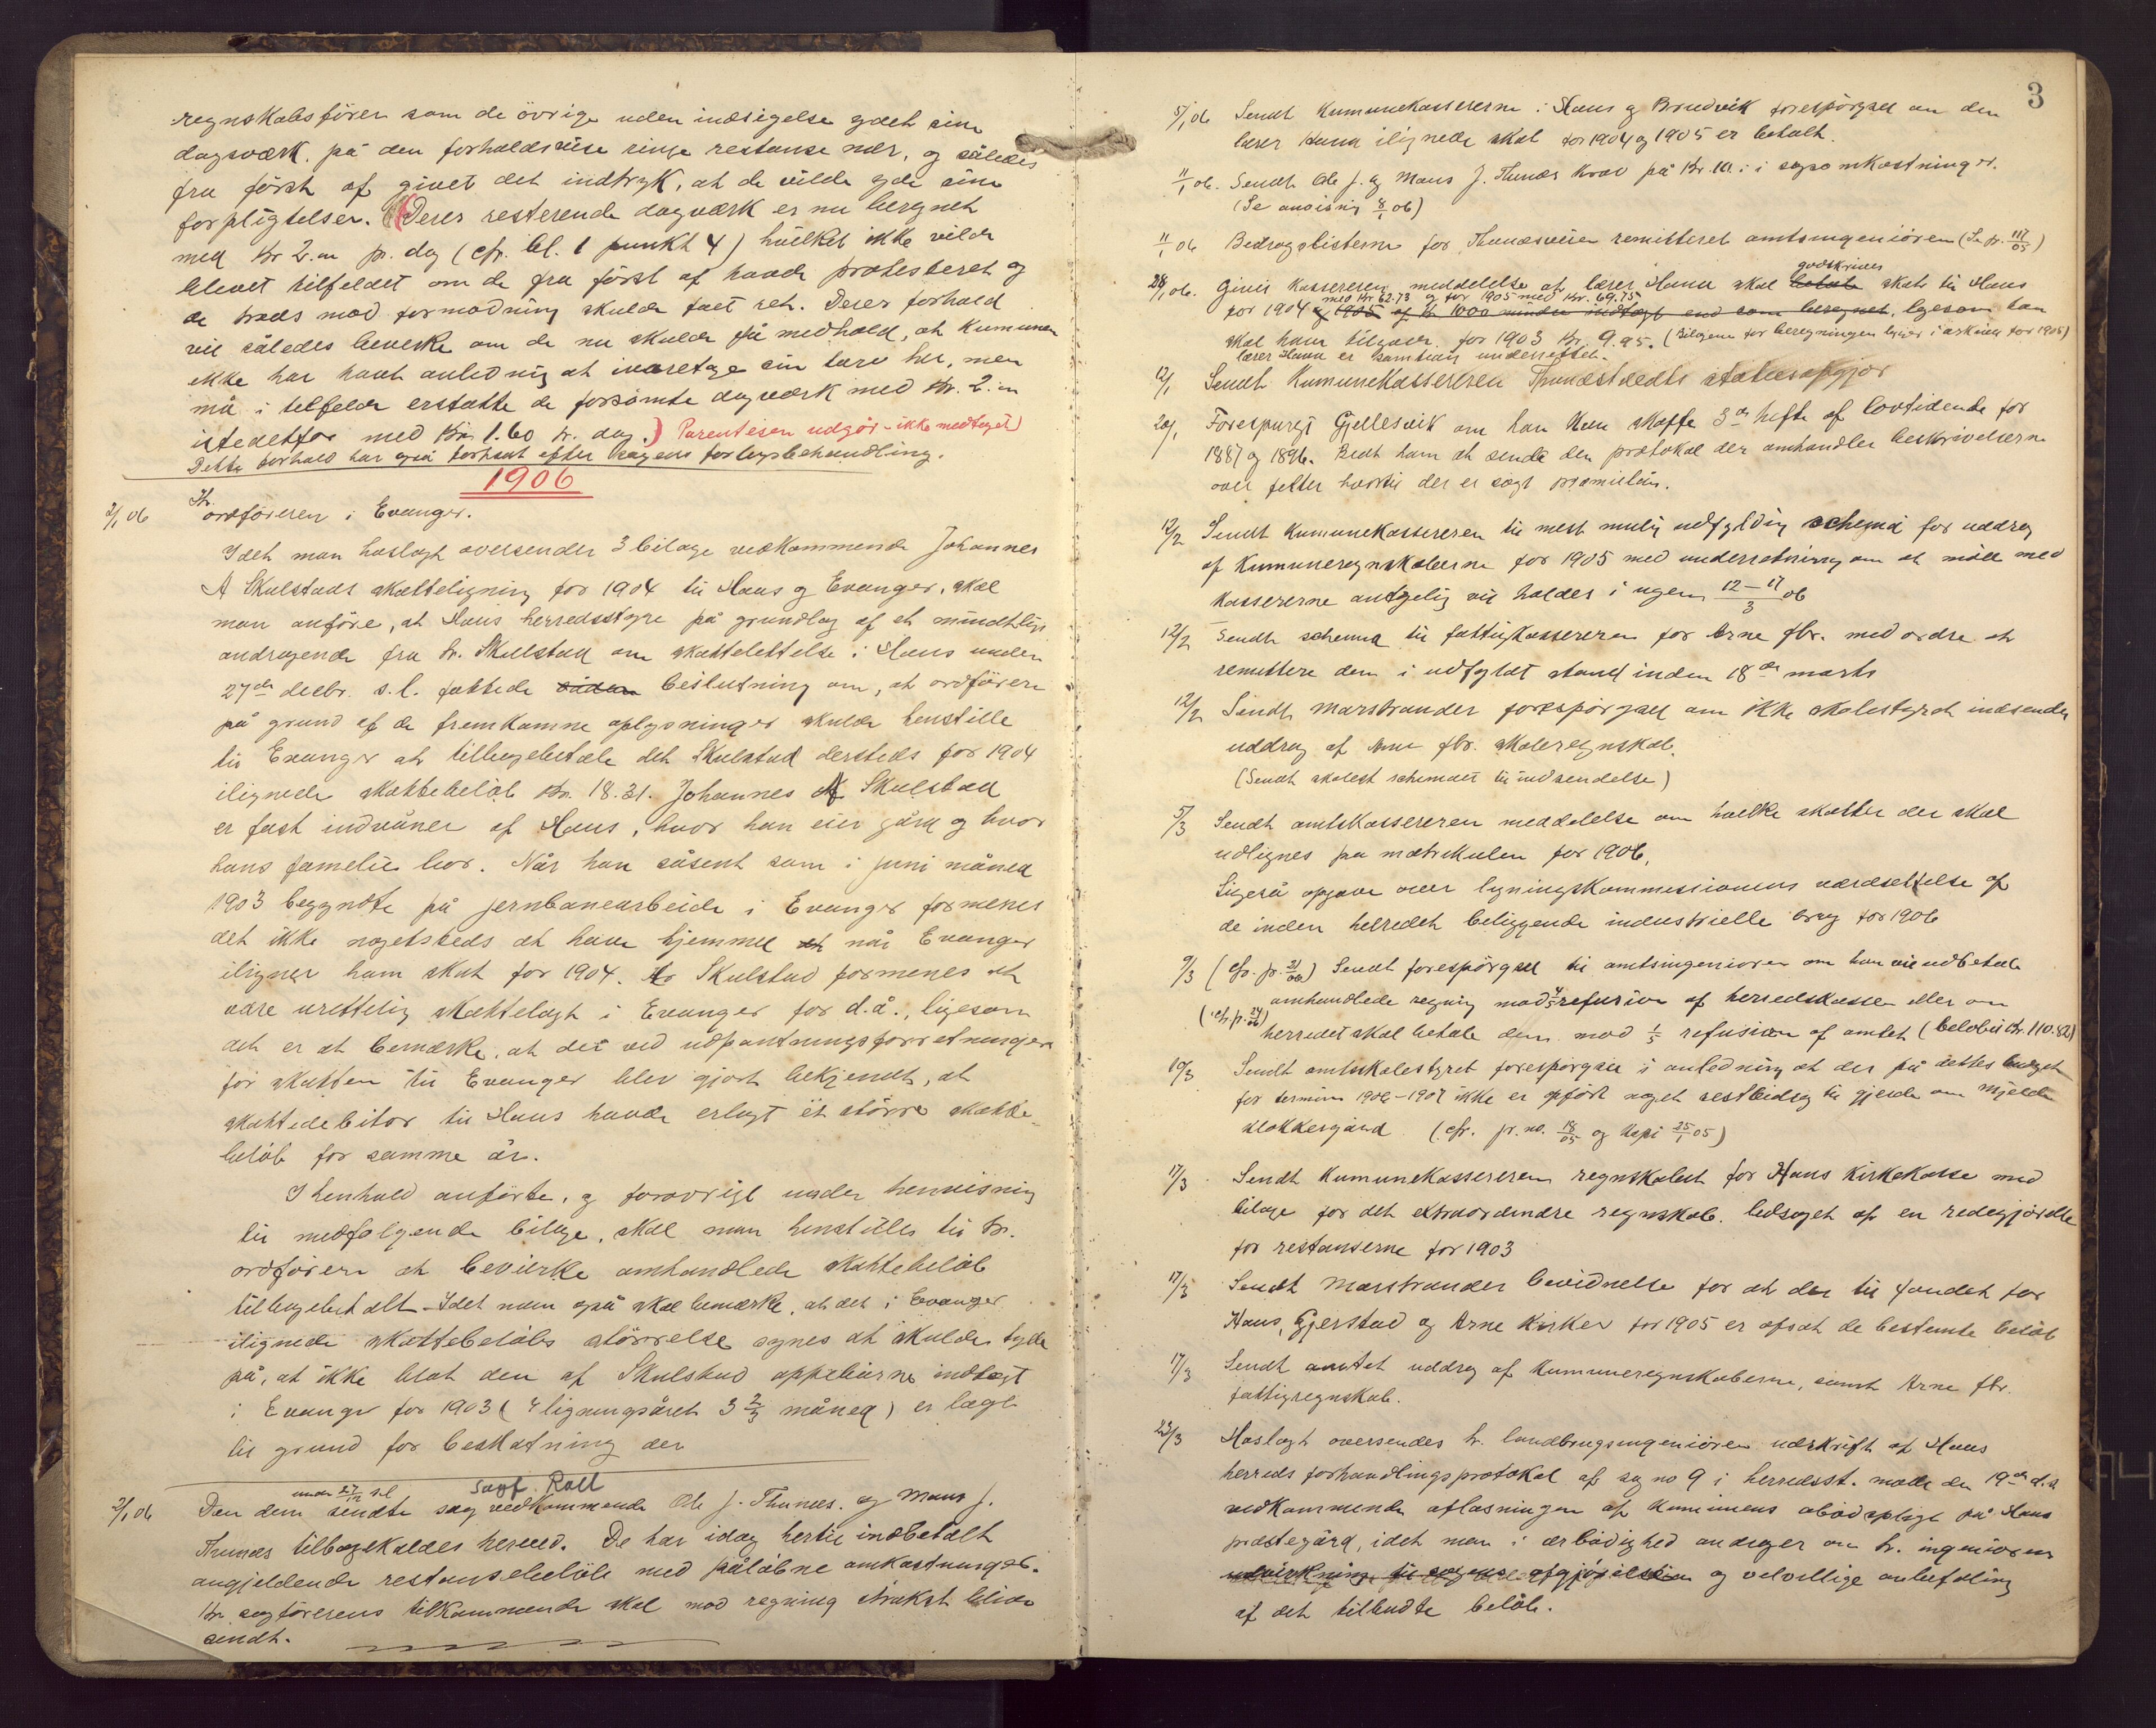 regnskabsfører som de øvrige uden indsigelse ydet sine
dagsværk, på den forholdsvise ringe restanse nær, og således
fra først af givet det indtryk, at de vilde yde sine
forpligtelser. (Deres resterende dagværk er nu beregnet
med kr 2.00 pr. dag (cfr. bl. 1 punkt 4) hvilket ikke vilde
blevet tilfeldet om de fra først af havde protesteret og
de trods mod formodning skulde faet ret. Deres forhold
vil således bevirke om de nu skulde få medhold, at kumunen
ikke har havt anledning at ivaretage sin tarv her, men
må i tilfelde erstatte de forsømte dagværk med kr. 2.00
istedetfor med kr. 1.60 pr. dag.) Parentesen udgår - ikke medtaget)
Dette forhold har også forhent efter sagens forlegsbehandling.
1906
2/1 06 Hr. ordføreren i Evanger.
Idet man hoslagt oversender 3 bilage vedkommende Johannes
A Skulstads skatteligning for 1904 til Haus og Evanger, skal
man anføre, at Haus herredsstyre på grundlag af et mundtligt
andragende fra hr. Skulstad om skattelettelse i Haus under
27de decbr. s.l. fattede sådan beslutning om, at ordføreren
på grund af de fremkomne oplysninger skulde henstille
til Evanger at tilbagebetale det Skulstad dersteds for 1904
ilignede skattebeløb kr. 18.31. Johannes A Skulstad
er fast indvåner af Haus, hvor han eier gård og hvor
hans familie bor. Når han såsent som i juni måned
1903 begyndte på jernbanearbeide i Evanger formenes
det ikke nogetsteds at have hjemmel at når Evanger
iligner ham skat for 1904. Hr Skulstad formenes at
være urettelig skattelagt i Evanger for d.å., ligesom
det er at bemærke, at det ved udpantningsforretningen
for skatten til Evanger blev gjort bekjendt, at
skattedebitor til Haus havde erlagt et større skatte-
beløb for samme år.
I henhold anførte, og forøvrigt under henvisning
til medfølgende bilage, skal man henstilles til hr.
ordføreren at bevirke omhandlede skattebeløb
tilbagebetalt. Idet man også skal bemærke, at det i Evanger
ilignede skattebeløbs størrelse synes at skulde tyde
på, at ikke blot den af Skulstad oppebårne indtægt
i Evanger for 1903 (I ligningsåret 3 2/3 måned) er lagt
til grund for beskatning der
2/1 06 Den dem under 27/12 s.l. sendte sag sagf. Roll vedkommende Ole J. Thunes. og Mons J.
Thunes tilbagekaldes herved. De har idag hertil indbetalt
angjeldende restansebeløb med påløbne omkostninger.
Hr. sagførerens tilkommende skal mod regning straks blive
sendt.
3
5/1 06 Sendt kumunekassererne i Haus og Bruvik forespørgsel om den
lærer Hana ilignede skat for 1904 og 1905 er betalt.
11/1 06. Sendt Ole J. og Mons J. Thunes krav på kr. 10.- i sagsomkostninger.
(Se anvisning 8/1 06)
11/1 06 Bedragslisterne for Thunesveien remitteret amtsingeniøren (Se pr. 117/05)
28/1 06. Givet kassereren meddelelse at lærer Hana skal betale godskrives skat til Haus
for 1904 med kr 62.73 og for 1905 med kr. 69.75 og 1905 af kr 1000 mindre indtægt end som beregnet, ligesom han
skal have tilgode for 1903 kr. 9.95. (Bilagene for beregningen ligger i arkivet for 1905)
lærer Hana er samtidig underrettet.
12/1 Sendt kumunekassereren Thunestvedts statusopgjør
20/1 Forespurgt Gjellesvik om han kan skaffe 3de hefte af lovtidende for
1887 og 1896. Bedt ham at sende den protokol der omhandler beskrivelserne
over felter hvortil der er søgt præmielån.
12/2 Sendt kumunekassereren til mest mulig udfylding schema for uddrag
af kumuneregnskaberne for 1905 med underretning om at møde med
kassererne antagelig vil holdes i ugen 12-17/3 06
12/2 Sendt schema til fattigkassereren for Arne fbr. med ordre at
remittere dem i udfyldt stand inden 18de marts
12/2 Sendt Marstrander forespørgsel om ikke skolestyret indsender
uddrag af Arne fbr. skoleregnskab.
(Sendt skolest schemaet til indsendelse)
5/3 Sendt amtskassereren meddelelse om hvilke skatter der skal
udlignes på matrikulen for 1906.
Ligeså opgave over ligningskommissionens værdsettelse af
de inden herredet beliggende industrielle brug for 1906
9/3 (cfr. pr. 21/06) Sendt forespørgsel til amtsingeniøren om han vil udbetale
omhandlede regning mod 4/5 refusion af herredskassen eller om
(cfr. pr. 24/06) herredet skal betale den mod 1/5 refusion af amtet (beløbet kr. 110.82)
10/3 Sendt amtskolestyret forespørgsel i anledning at der på dettes budget
for termin 1906-1907 ikke er opført noget restbidrag til gjerde om Mjelde
klokkergård (cfr. jr. no. 18/05 og kopi 25/1 05)
17/3 Sendt kumunekassereren regnskabet for Haus kirkekasse med
bilage for det extraordinære regnskab. ledsaget af en redegjørelse
for restanserne for 1903
17/3 Sendt Marstrander bevidnelse for at der til fondet for
Haus, Gjerstad og Arne kirker for 1905 er afsat de bestemte beløb
17/3 Sendt amtet uddrag af kumuneregnskaberne, samt Arne fbr.
fattigregnskab.
23/3 Hoslagt oversendes hr. landbrugsingeniøren udskrift af Haus
herreds forhandlingsprotokol af sag no 9 i herredsst. møde den 19de d.s
vedkommende afløsningen af kumunens åbodspligt på Haus
præstegård, idet man i ærbødighed andrager om hr. ingeniørens
udvirkning til sagens afgjørelse og velvillige anbefaling
af det tilbudte beløb.